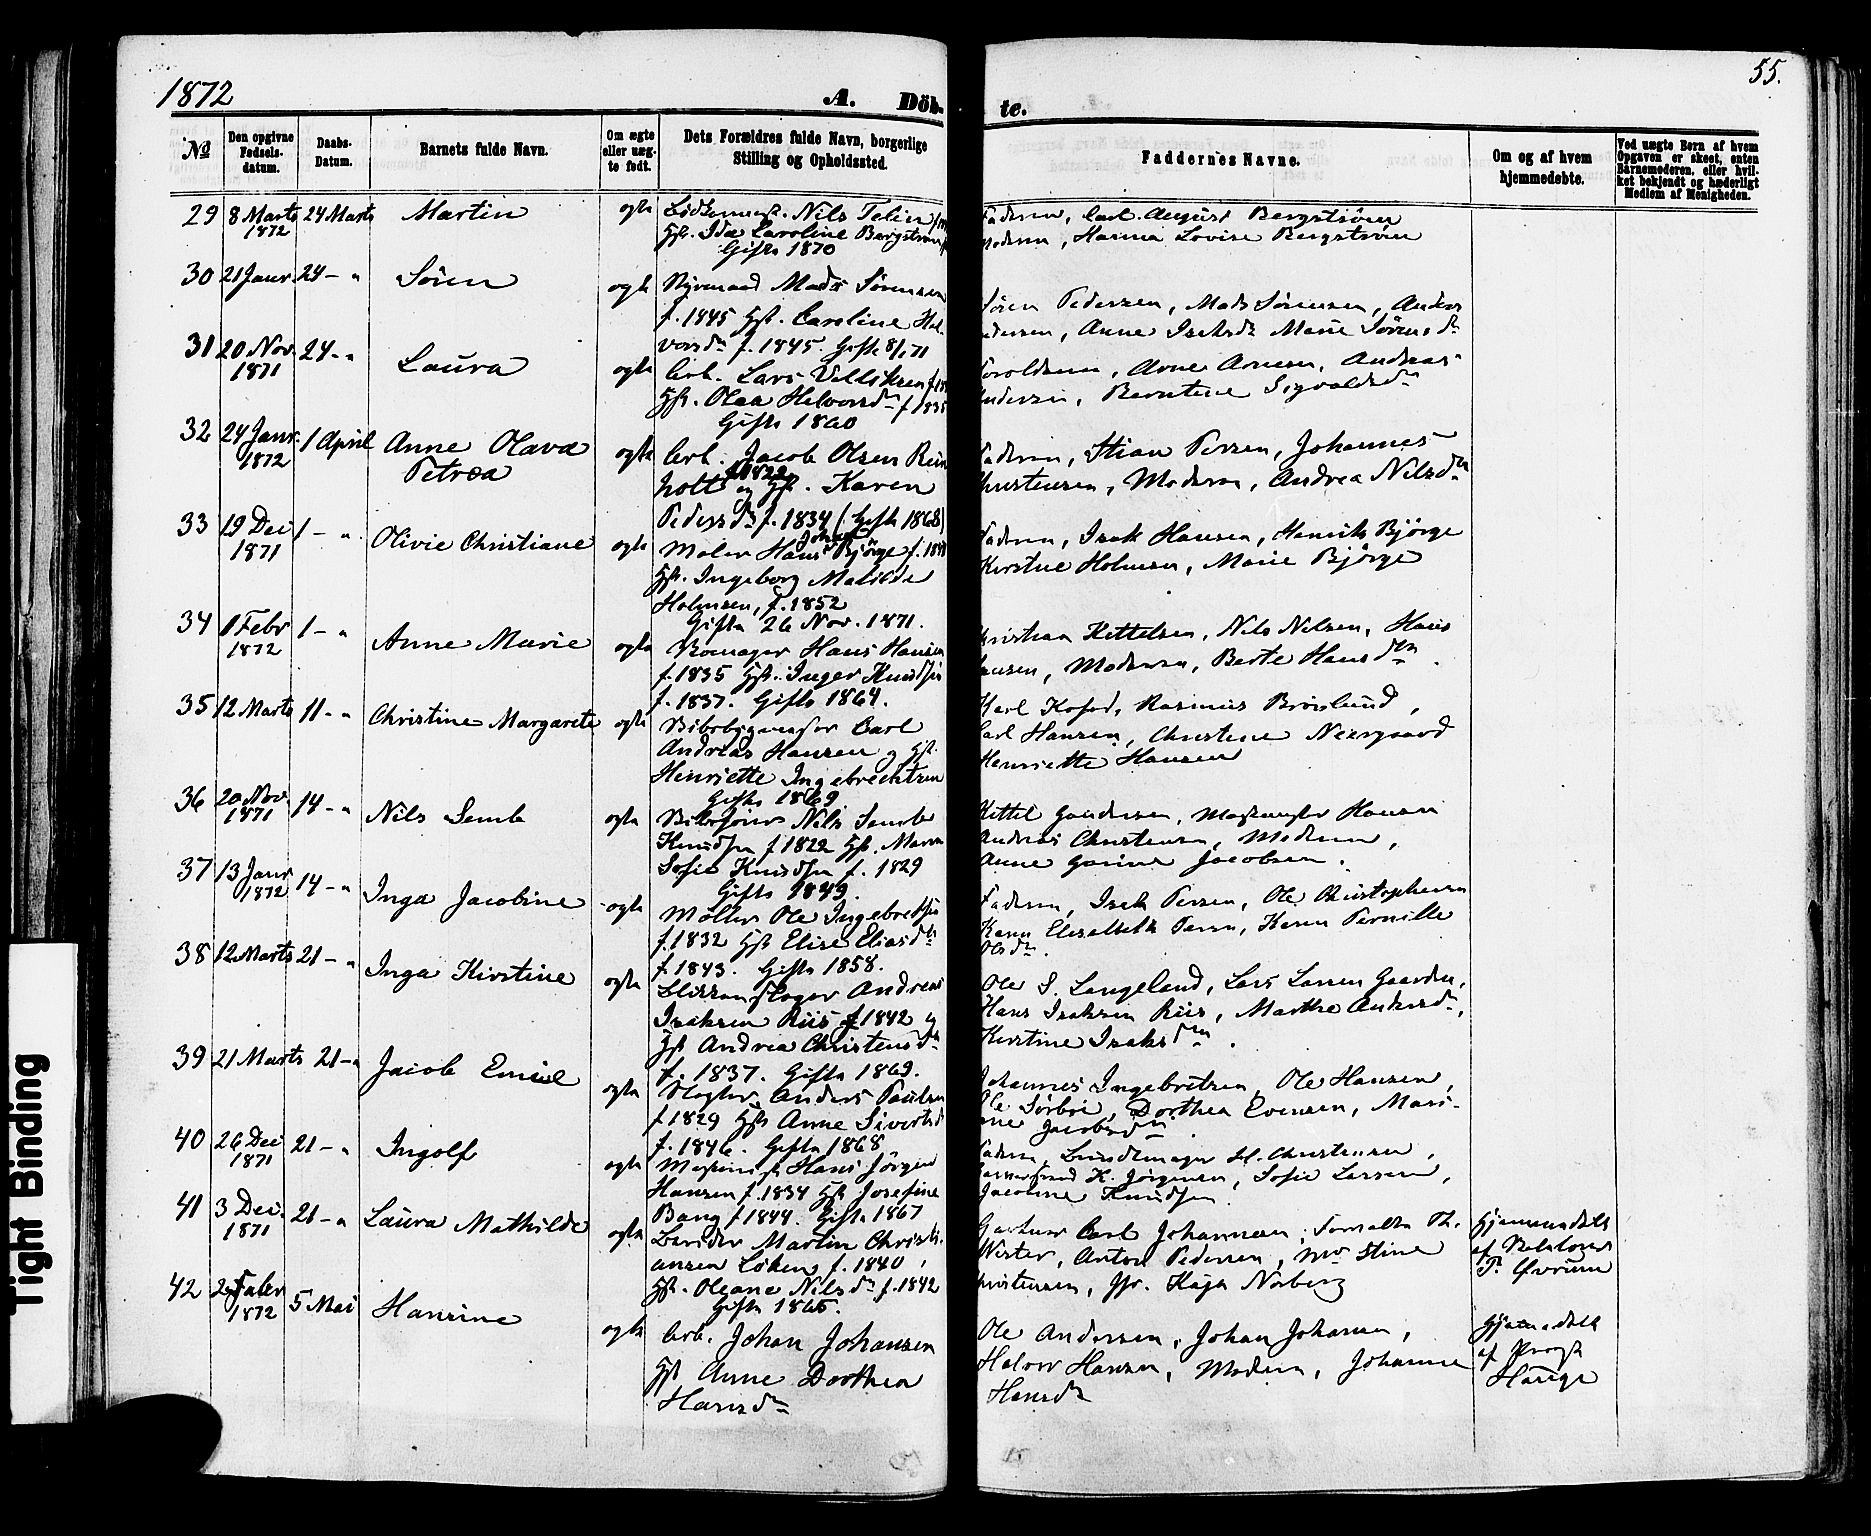 1872
A. Döb-
te.
55.
No
Den opgivne Fødsels-datum.
Daabs-Datum.
Barnets fulde Navn.
Om ægte eller uæg-te født.
Dets Forældres fulde Navn, borgerlige Stilling og Opholdssted.
Faddernes Navne.
Om og af hvem hjemmedøbte.
Ved uægte Børn af hvem Opgaven er skeet, enten Barnemoderen, eller hvil-ket bekjendt og hæderligt Medlem af Menigheden.
29 8 Marts 1872 24 Marts Martin ægte
Nils Telin
Hst. Ida Caroline Bergstrøm
Gifte 1870
Faderen, Carl August Bergstrøm
Moderen, Hanna Lovise Bergstrøm
30 21 Janr 24 - " Søren ægte
Mads Sørensen
f. 1845 Hst. Caroline Hal-
vorsdn f. 1845. Gifte 8/1 71
Søren Pedersen, Mads Sørensen, Anders
Pedersen, Anne Isaksdn Marie Sørensdn
31 20 Nov. 1871 24 - " Laura ægte
Arb. Lars
Hst. Olea Halvorsdn f 1835
Gifte 1860
Arne Arnesen, Andreas
Andersen, Berntine Sigvaldsdn
32 24 Janr. 1872 1 April Anne Olava Petrea ægte
Arb. Jacob Olsen Rein
holt f 1822 og Hst. Karen
Pedersdn f. 1834 (Gifte 1868)
Faderen, Stian Persen, Johannes
Christensen, Moderen, Andrea Nilsdn
33 19 Dec 1871 1 - " Olivie Christiane ægte
Maler Hans Johan Bjørge f. 184
Hst. Ingeborg Matilde
Holmsen, f. 1852
Gifte 26 Nov. 1871.
Faderen, Isak Hansen, Henrik Bjørge
Kirstine Holmsen, Marie Bjørge
34 1 Febr 1872 1 - " Anne Marie ægte
Hans Hansen
f. 1835 Hst. Inger Knudsen
f. 1837. Gifte 1864.
Kristian Kittelsen, Nils Nilsen, Hans
Hansen, Moderen, Berte Hansdn
35 12 Marts 11 - " Christine Margarete ægte
Carl
Andreas Hansen og Hst.
Henriette Ingebrechtsen
Gifte 1869
Karl Kofod, Rasmus Brønlund,
Carl Hansen, Christine Neergaard
Henriette Hansen
36 20 Nov. 1871 14 - " Nils Semb ægte
Nils Semb
Knudsen f 1822 Hst. Maren
Sofie Knudsen f. 1829
Gifte 1849.
Kittel Gundersen, Hansen
Andreas Christensen, Moderen,
Anne Gurine Jacobsen.
37 13 Janr 1872 14 - " Inga Jacobine ægte
Møller Ole Ingebretsen
f. 1832 Hst Elise Eliasdn
f. 1843. Gifte 1858.
Faderen, Isak Persen, Ole Christophersen
Karen Elisabeth Persen, Karen Pernille
Olsdn.
38 12 Marts 21 - " Inga Kirstine ægte
Andreas
Isaksen Riis f 1842 og
Hst Andrea Christensdn
f. 1837. Gifte 1869.
Ole S. Langeland, Lars Larsen Gaarden,
Hans Isaksen Riis, Marthe Andersdn,
Kirstine Isaksdn.
39 21 Marts 21 - " Jacob Emil ægte
Slagter Anders Paulsen
f 1829 Hst Anne Sivertsdn
f. 1846. Gifte 1868
Johannes Ingebretsen, Ole Hansen,
Ole Sørbøe, Dorthea Evensen, Mari-
ane Jacobsdn
40 26 Dec 1871 21 - " Ingolf ægte
Maskinist Hans Jørgen
Hansen f. 1834 Hst Josefine
Bang f 1844. Gifte 1867
Faderen, Christensen,
K. Jørgensen, Sofie Larsen,
Jacobine Knudsen
41 3 Dec. 1871 21 - " Laura Mathilde ægte
Martin Christi-
ansen Løken f. 1840,
Hst. Oleane Nilsdn f. 1842
Gifte 1865.
Carl Johannesen, Th.
Wister, Anton Pedersen, Stine
Christensen, Kaja Norberg
Hjemmedøbt
af
P. Øvrum
42 2 Febr 1872 5 Mai Hansine ægte
Arb. Johan Johansen
Hst Anne Dorthea
Hansdn
Ole Andersen, Johan Johansen,
Halvor Hansen, Moderen, Johanne
Hansdn
Hjemmedøbt
af Provst
Hauge
Tight Binding